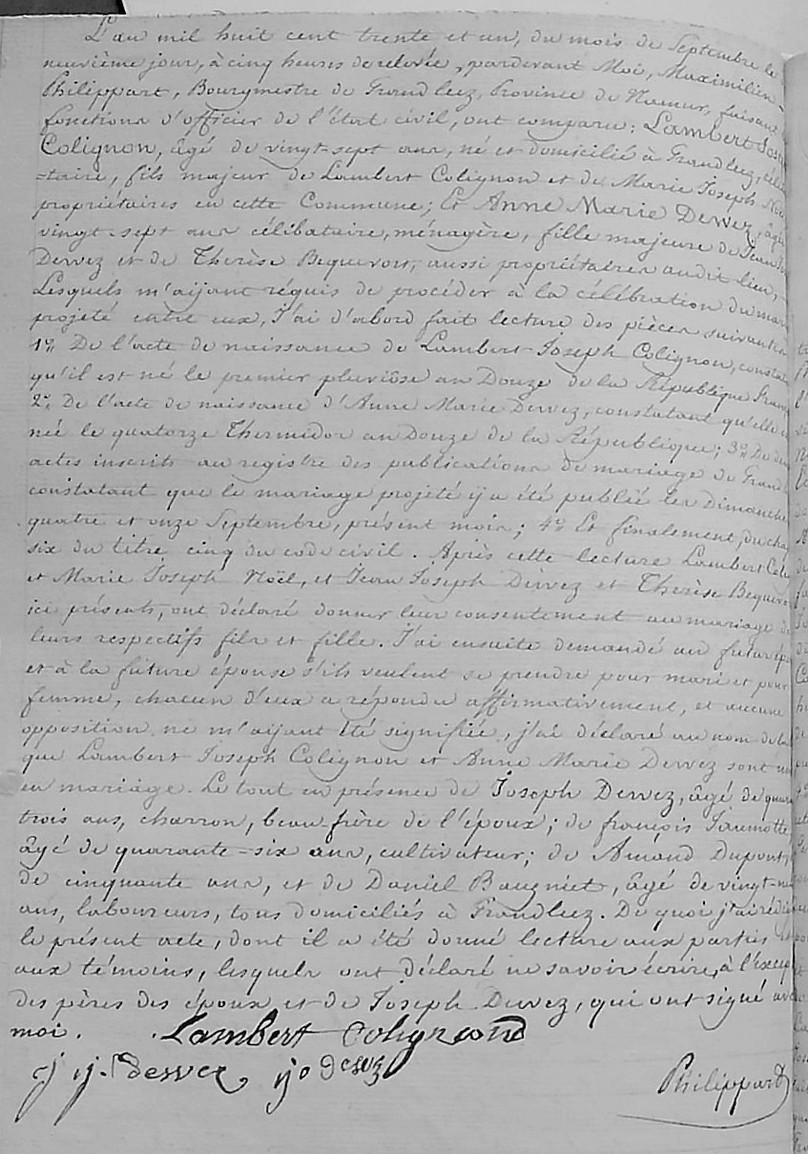 L'an mil huit cent trente et un, du mois de Septembre le
neuvième jour, à cinq heures de relevée, pardevant Moi, Maximilien
Philippart, Bourgmestre de Grandleez, Province de Namur, faisant
fonctions d'officier de l'état civil, ont comparu; Lambert Jos
Colignon, âgé de vingt-sept ans, né et domicilié à Grandleez, céli
-taire, fils majeur de Lambert Colignon et de Marie Joseph Noë
propriétaires en cette Commune; Et Anne Marie Dewez, âgé
vingt-sept ans célibataire, ménagère, fille majeure de Jean
Dewez et de Therèse Bequevort, aussi propriétaires audit lieu,
Lesquels m'aijant réquis de procéder à la célébration du mar
projeté entre eux, J'ai d'abord fait lecture des pièces suivantes
1º De l'acte de naissance de Lambert-Joseph Colignon, constat
qu'il est né le premier pluviôse an Douze de la République Fran
2º De l'acte de naissance d'Anne Marie Dewez, constatant qu'elle e
née le quatorze Thermidor an Douze de la République; 3º De deu
actes inscrits au registre des publications de mariage de Grand
constatant que le mariage projeté ij a été publié les Dimanche
quatre et onze Septembre, présent mois; 4º Et finalement, du cha
six du titre cinq du code civil. Après cette lecture Lambert Col
et Marie Joseph Noël, et Jean Joseph Dewez et Therèse Bequev
ici présents, ont déclaré donner leur consentement au mariage de
leurs respectifs fils et fille. J'ai ensuite demandé au futur ép
et à la future épouse s'ils veulent se prendre pour mari et pour
femme, chacun d'eux a répondu affirmativement, et aucune
opposition ne m'aijant été signifiée, j'ai déclaré au nom de la
que Lambert Joseph Colignon et Anne Marie Dewez sont un
en mariage. Le tout en présence de Joseph Dewez, âgé de quara
trois ans, charron, beau frère de l'époux; de françois Jaumotte
âgé de quarante-six ans, cultivateur; de Amand Dupont,
de cinquante ans, et de Daniel Baugniet, âgé de vingt-n
ans, laboureurs, tous domiciliés à Grandleez. De quoi j'ai rédi
le présent acte, dont il a été donné lecture aux parties et
aux témoins, lesquels ont déclaré ne savoir écrire, à l'excep
des pères des époux et de Joseph Dewez, qui ont signé av
moi. Lambert Colignon
j ij. Dewez ijo dewez
Philippart